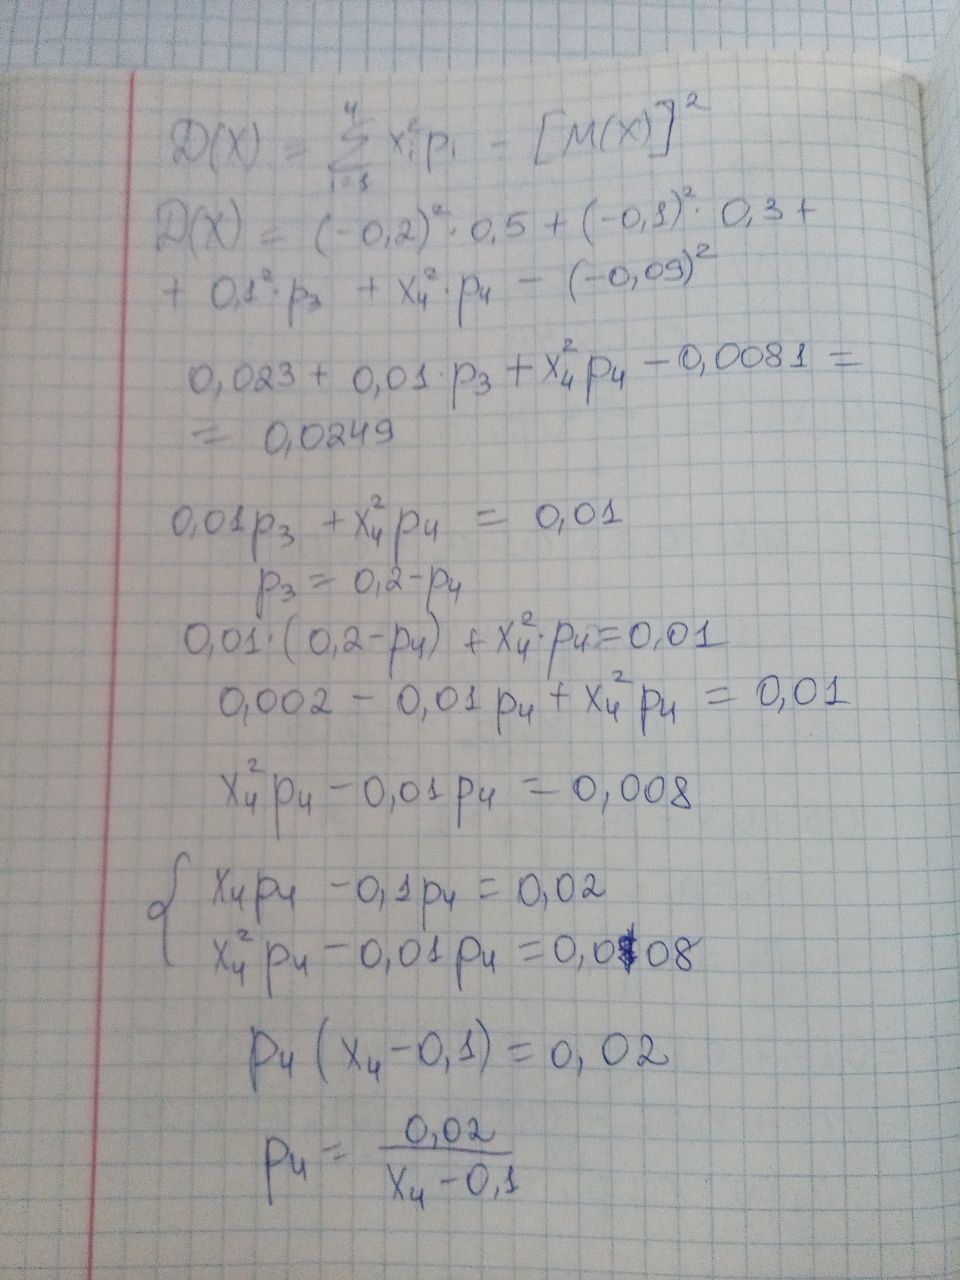 D(X) = ∑⁴ᵢ₌₁ xᵢ²pᵢ - [M(X)]²
D(X) = (-0,2)²·0,5 + (-0,1)²·0,3 +
+ 0,1²·p₃ + x₄²·p₄ - (-0,09)²
0,023 + 0,01·p₃ + x₄²p₄ - 0,0081 =
= 0,0249
0,01p₃ + x₄²p₄ = 0,01
p₃ = 0,2-p₄
0,01·(0,2-p₄) + x₄²·p₄ = 0,01
0,002 - 0,01p₄ + x₄²p₄ = 0,01
x₄²p₄ - 0,01p₄ = 0,008
{ x₄p₄ - 0,1p₄ = 0,02
x₄²p₄ - 0,01p₄ = 0,008
p₄(x₄-0,1) = 0,02
p₄ = 0,02 / (x₄-0,1)